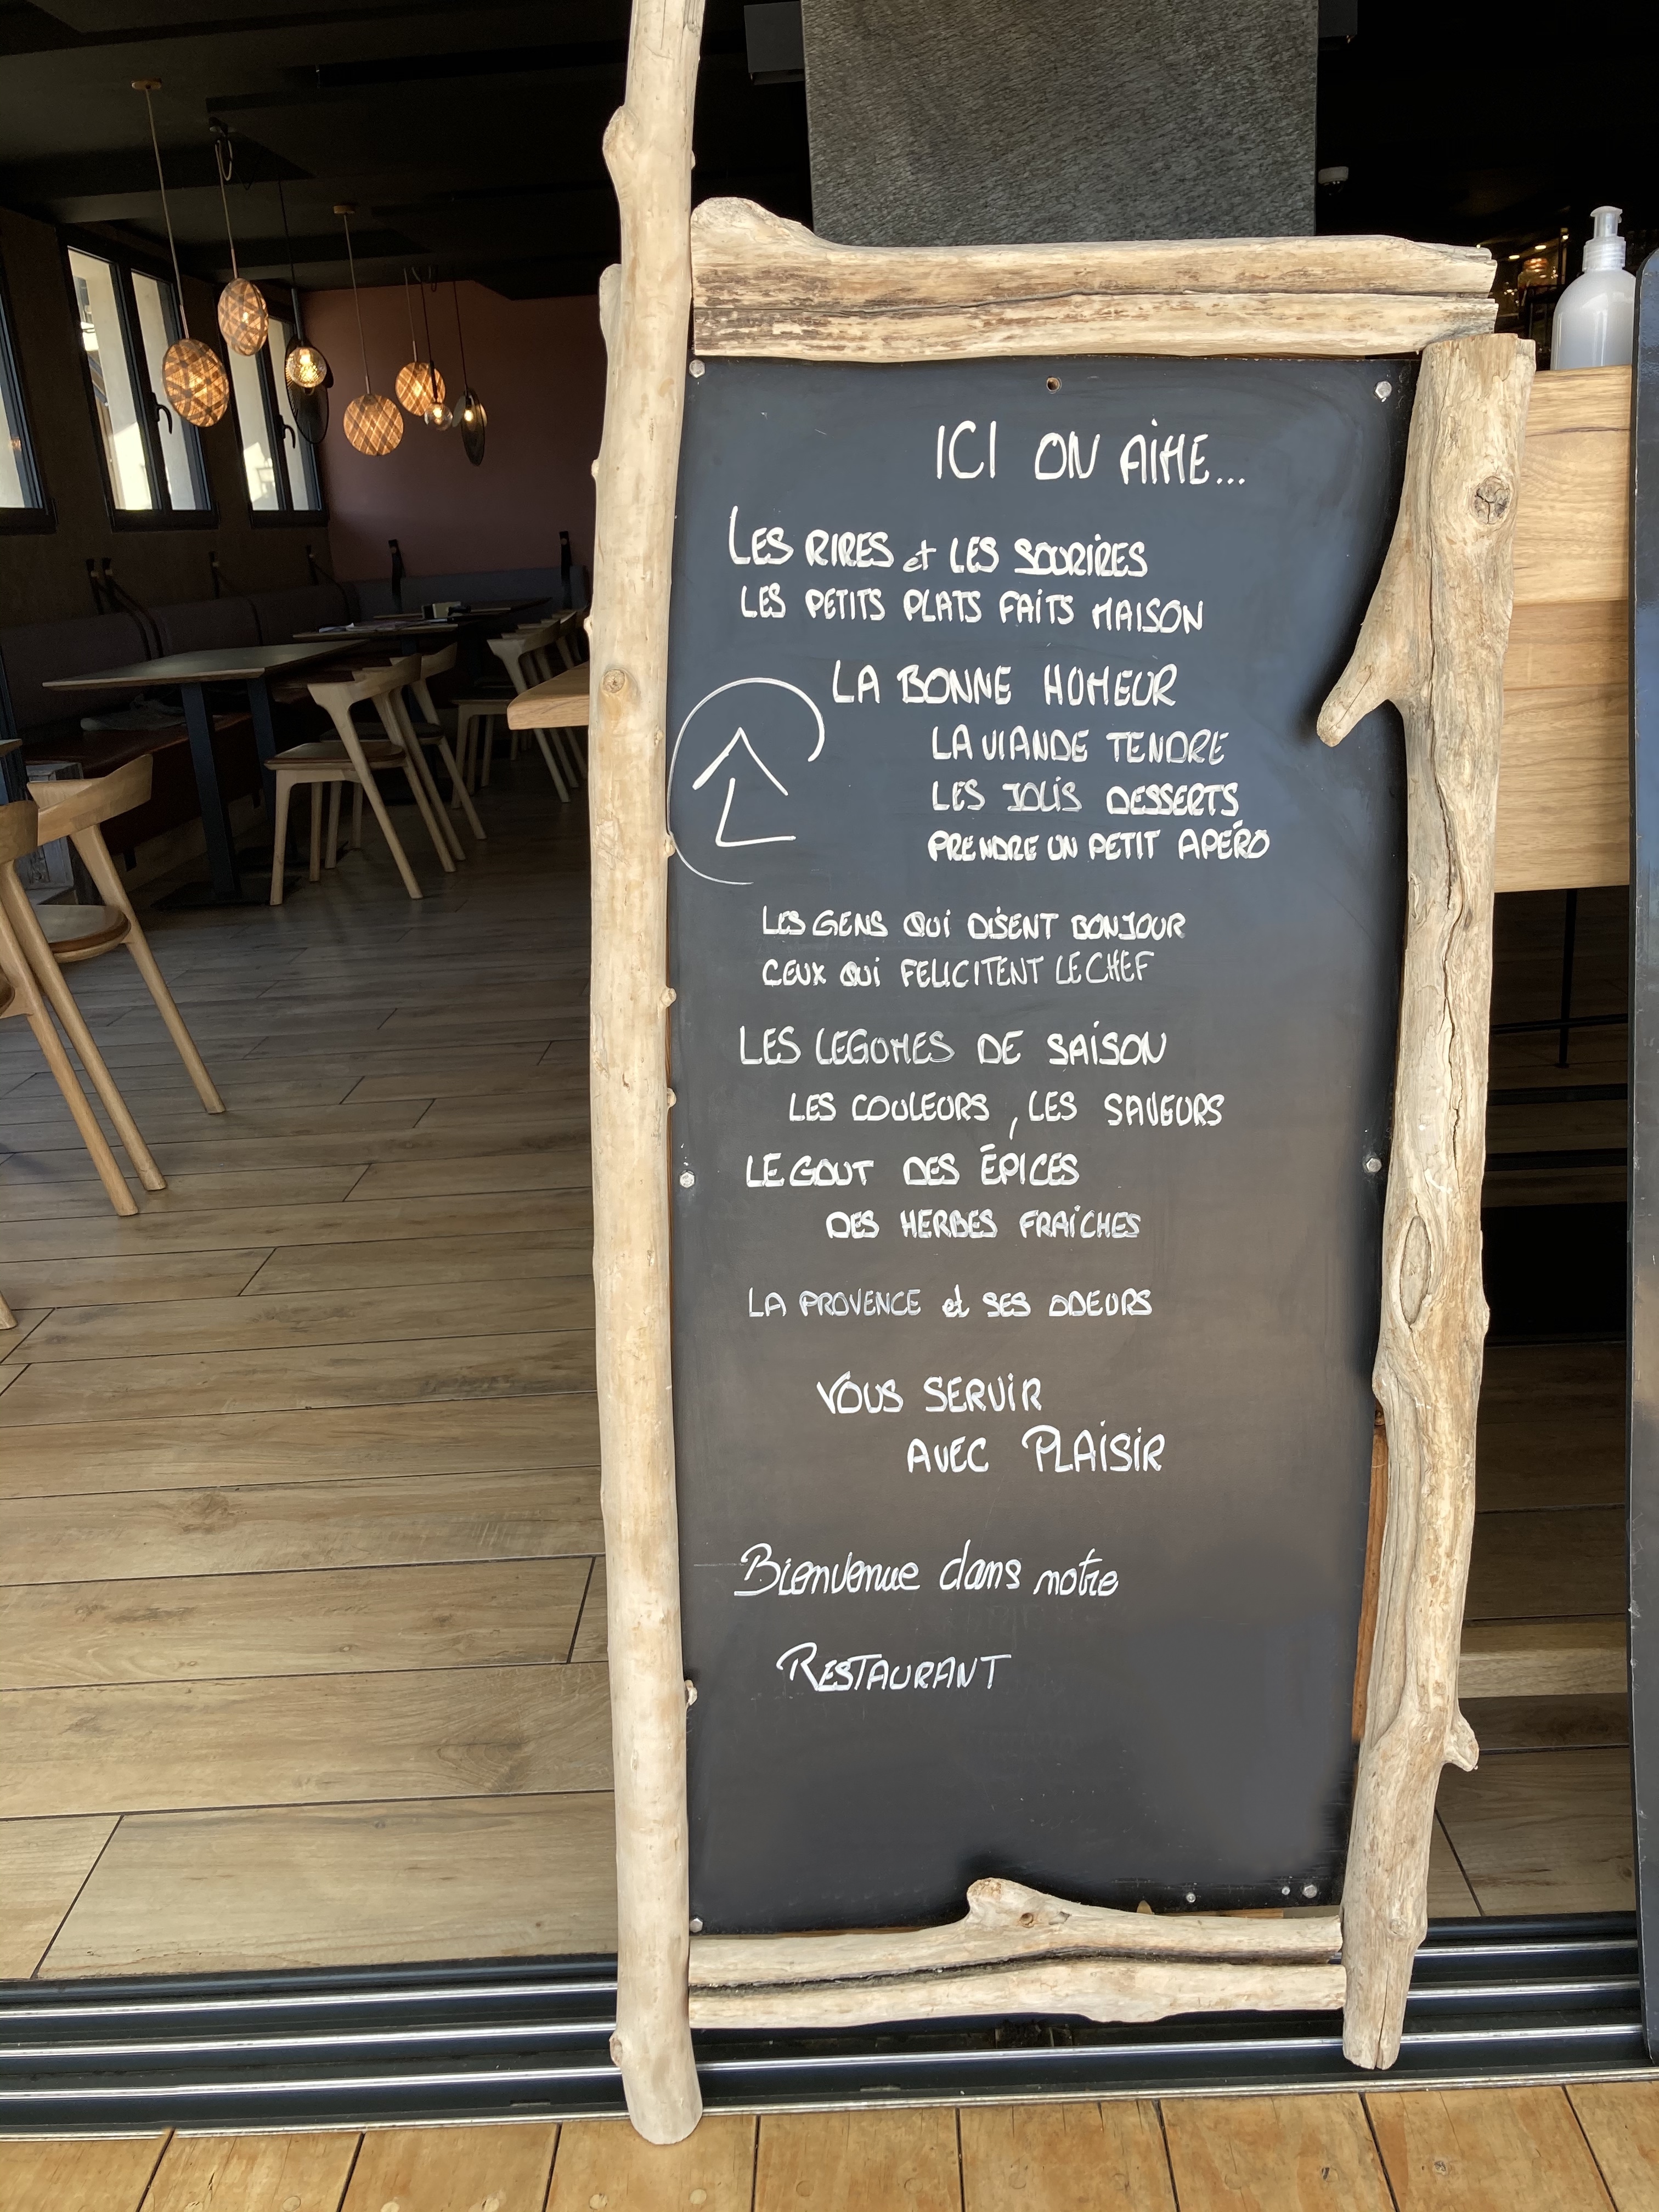 ICI ON AIME...
LES RIRES et LES SOURIRES
LES PETITS PLATS FAITS MAISON
LA BONNE HUMEUR
LA VIANDE TENDRE
LES JOLIS DESSERTS
PRENDRE UN PETIT APÉRO
LES GENS QUI DISENT BONJOUR
CEUX QUI FELICITENT LE CHEF
LES LEGUMES DE SAISON
LES COULEURS, LES SAVEURS
LE GOUT DES ÉPICES
DES HERBES FRAICHES
LA PROVENCE et SES ODEURS
VOUS SERVIR
AVEC PLAISIR
Bienvenue dans notre
RESTAURANT